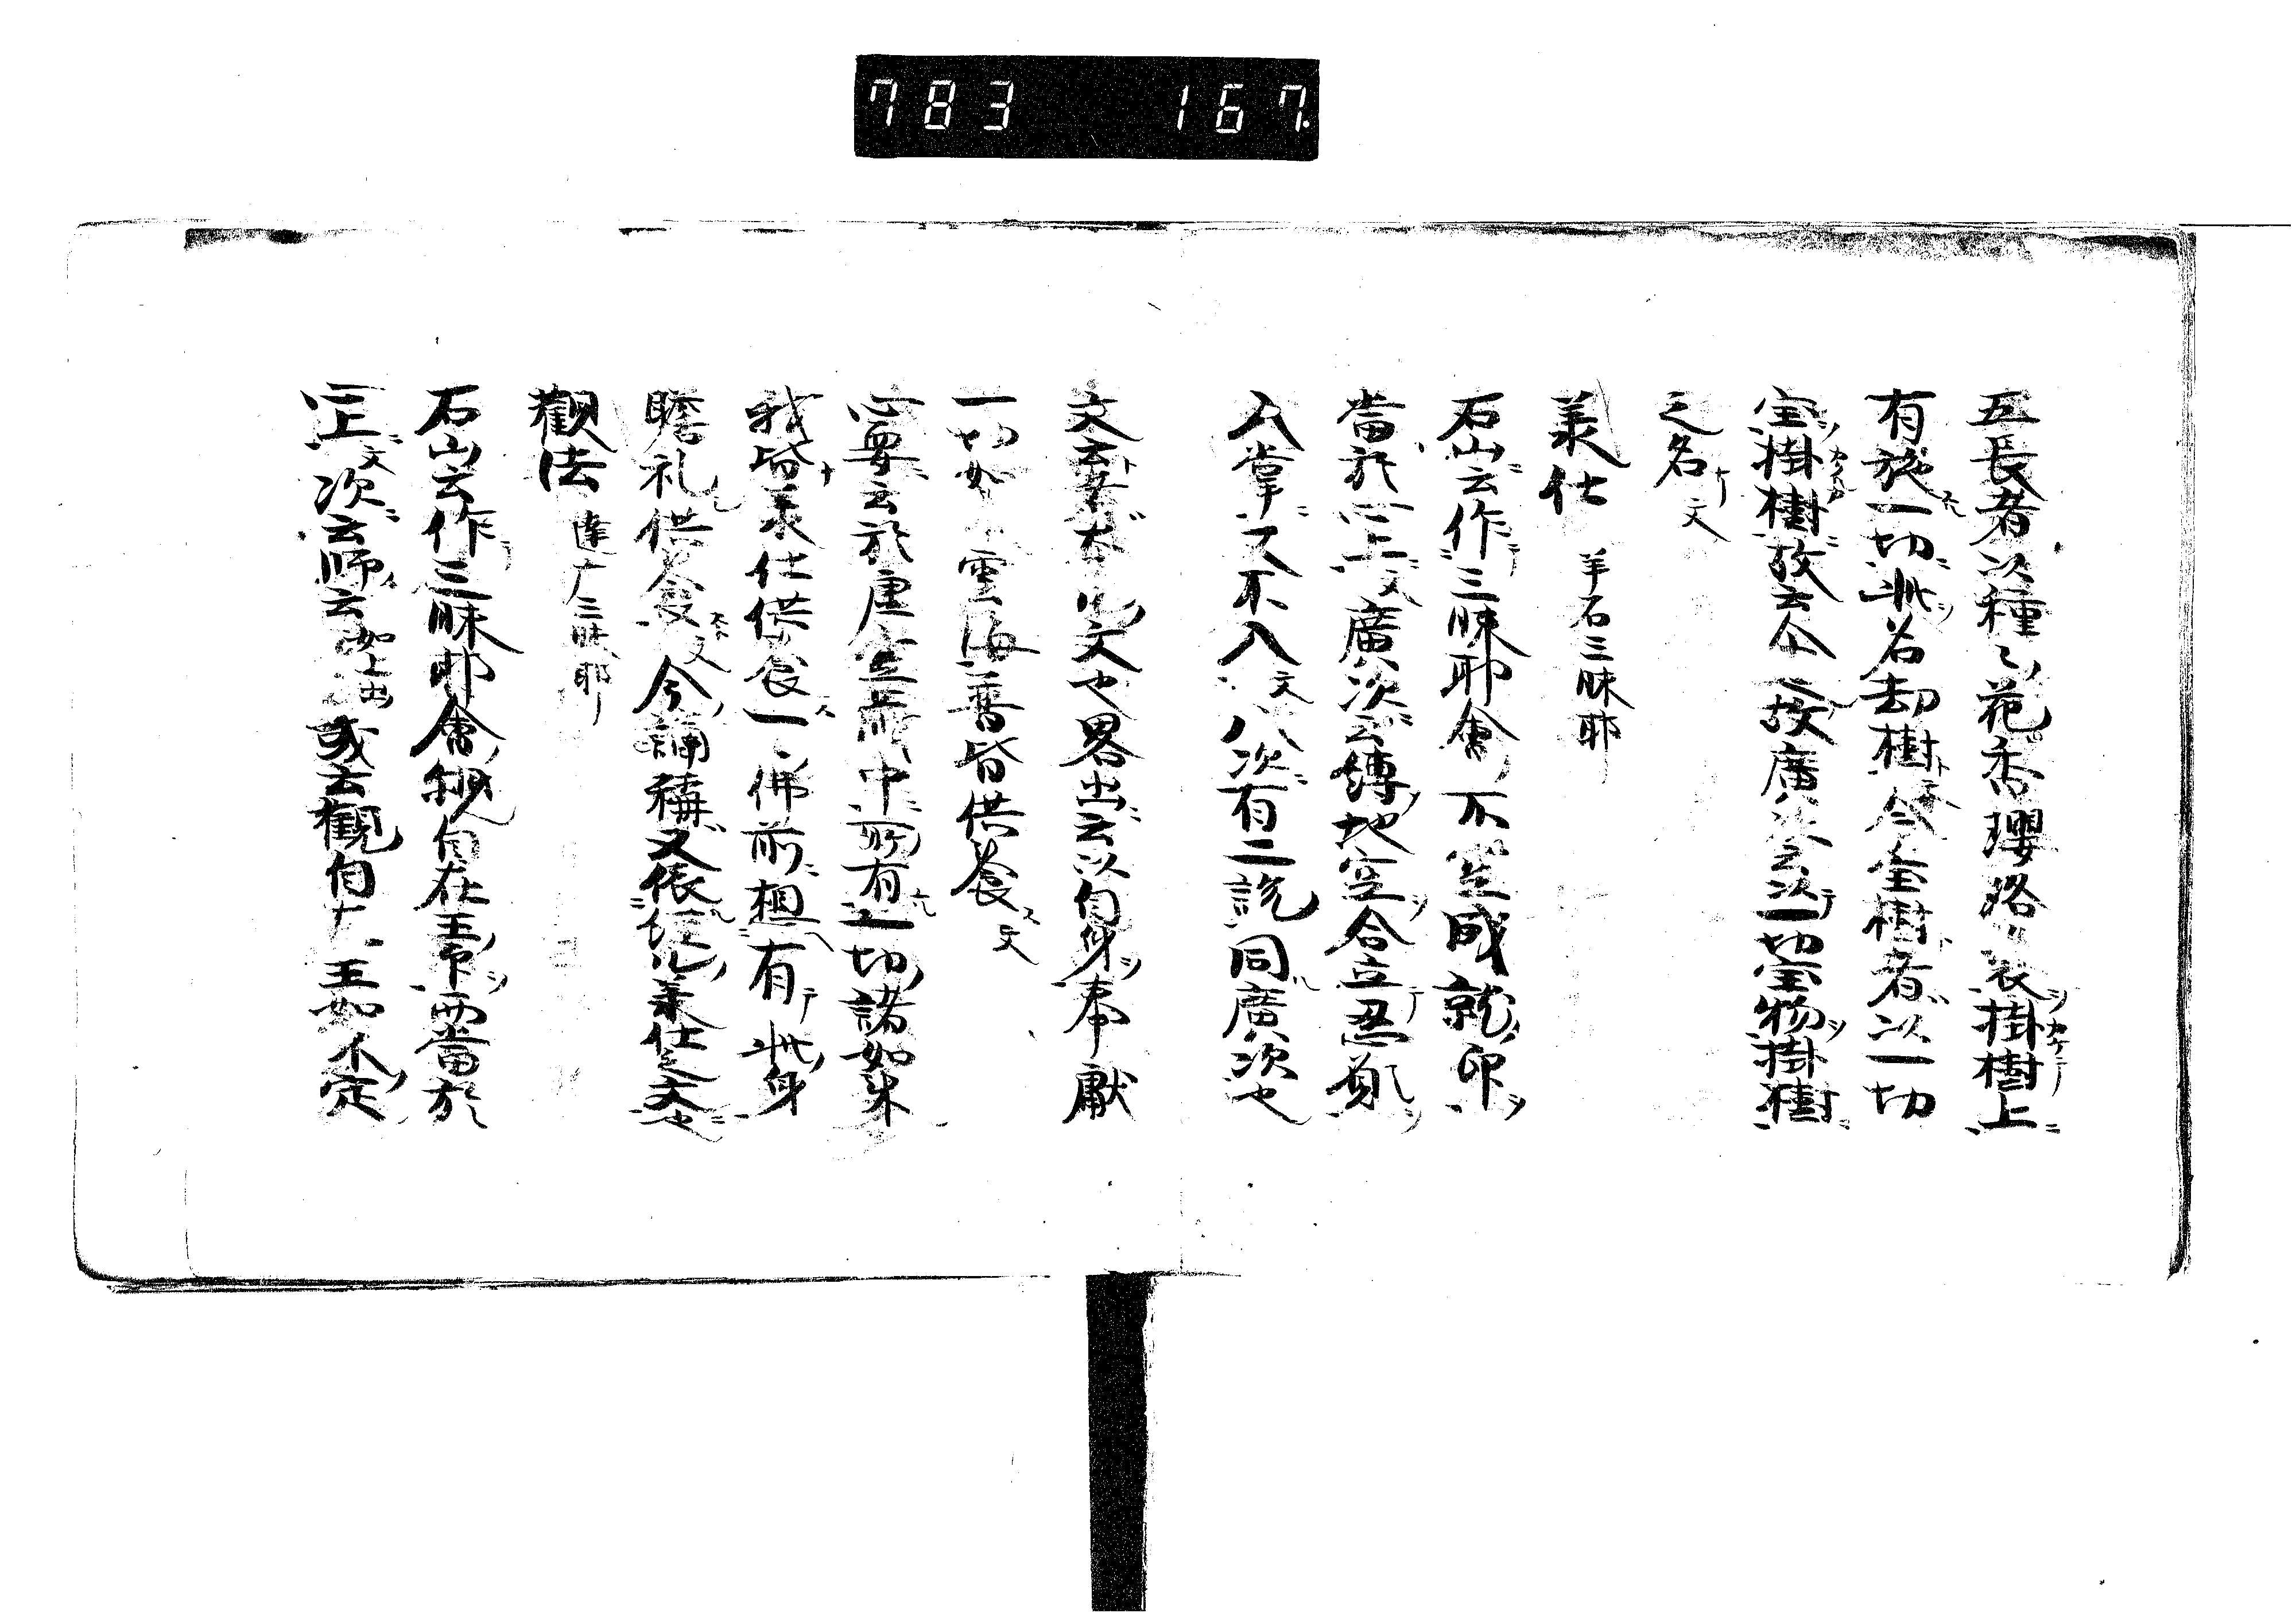 783 167
五長者以種々花香瓔珞衣掛樹上
有施一切此名劫樹今宝樹者以一切
宝掛樹故云尒故廣次云次一切宝物掛樹
之名文
羕仕 羊石三昧耶
石山云作三昧耶會不空成就印
當於心上文廣次云縛地空合立忍願
入掌又不入文八次有二説同廣次也
文也畧出云以自身奉献
一切如 雲海普皆供養文
心要云於虚空 中所有一切諸如来
我皆羕仕供養一々佛前想有此身
瞻礼供養文今誦 又依 羕仕之文也
觀法 達广三昧耶
石山云作三昧耶會觀自在王印而當於
心上文次云師云如上出或云觀自在王如来定